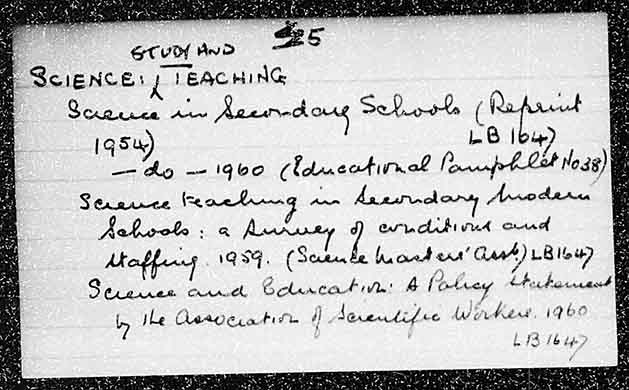 STUDY AND 25
SCIENCE: TEACHING
Science in Secondary Schools (Reprint
1954) LB 1647
— do — 1960 (Educational Pamphlet No 38)
Science teaching in Secondary Modern
Schools: a Survey of conditions and
staffing. 1959. (Science Masters' Assn) LB1647
Science and Education: A Policy Statement
by the Association of Scientific Workers. 1960
LB 1647